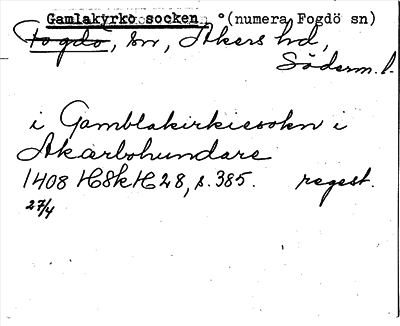 Gamlakyrko socken °(numera Fogdö sn)
Fogdö, sn, Åkers hd,
Söderm. l.
i Gamblakirkiesokn i
Akarbohundare
1408 HSkH 28, s. 385. regest.
27/4